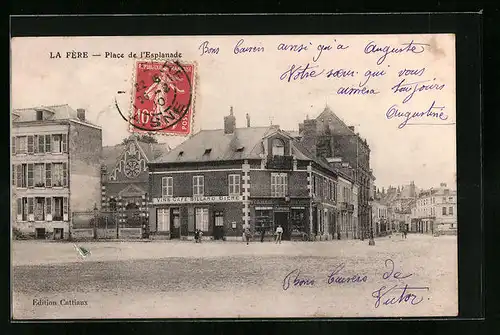 LA FÈRE — Place de l'Esplanade
Bons Baisers ainsi qu'a Auguste
Notre sœur qui vous
aimera toujours
Augustine
10
VINS CAFÉ BILLARD BIÈRE
Bons Baisers de
Victor
Edition Cattiaux